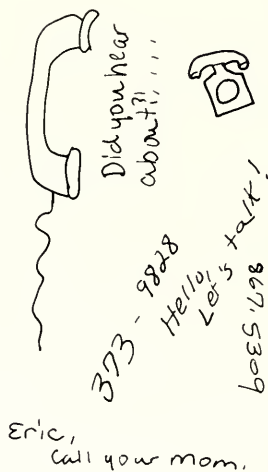 Did you hear
about?!....
373-9828
Hello,
Let's talk!
867.5309
Eric,
Call your mom.